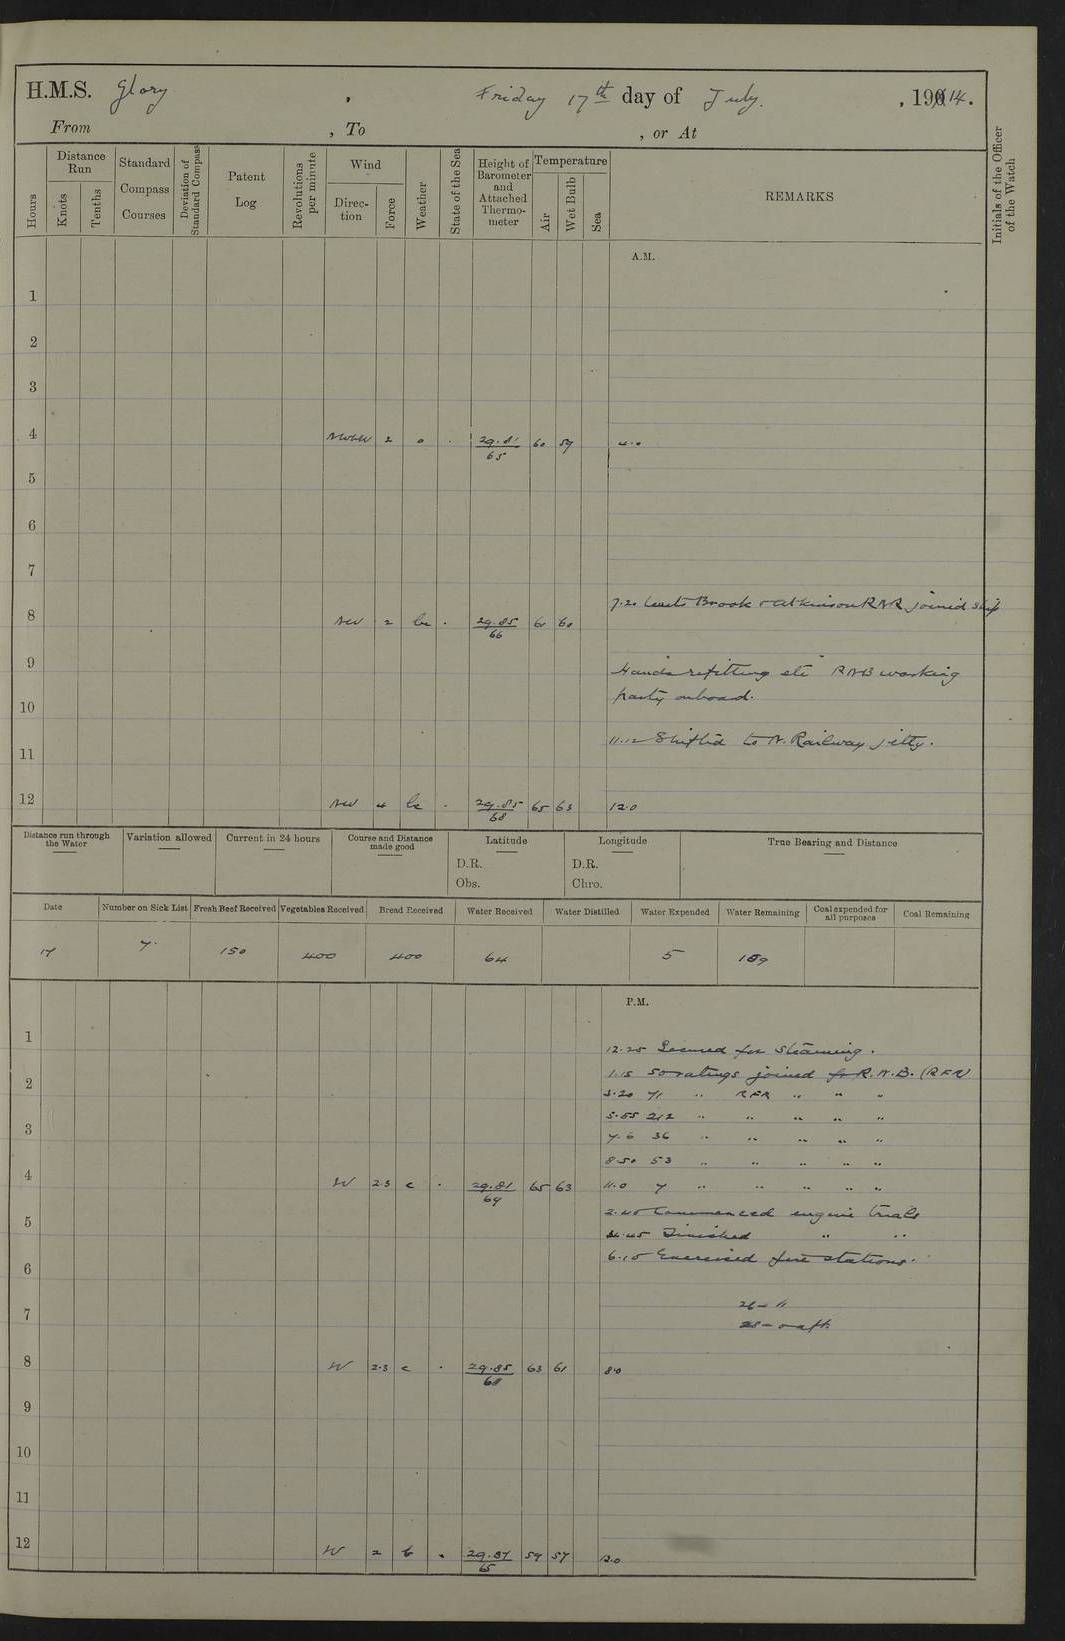 H.M.S. Glory , Friday 17th day of July. , 1914.
From , To , or At
Hours
Distance Run
Knots
Tenths
Standard Compass Courses
Deviation of Standard Compass
Patent Log
Revolutions per minute
Wind
Direction
Force
Weather
State of the Sea
Height of Barometer and Attached Thermometer
Temperature
Air
Wet Bulb
Sea
REMARKS
Initials of the Officer of the Watch
A.M.
1
2
3
4 2 o . 29.81 60 59 4.0
65
5
6
7
7.20 Lieuts Brook & Atkinson RNR joined ship
8 NW 2 bc . 29.85 61 60
66
9
Hands refitting etc RNB working
party onboard.
10
11.12 Shifted to N. Railway jetty.
11
12 NW 4 bc . 29.85 65 63 12.0
68
Distance run through the Water
Variation allowed
Current in 24 hours
Course and Distance made good
Latitude
D.R.
Obs.
Longitude
D.R.
Chro.
True Bearing and Distance
Date Number on Sick List Fresh Beef Received Vegetables Received Bread Received Water Received Water Distilled Water Expended Water Remaining Coal expended for all purposes Coal Remaining
17 7. 150 400 400 64 5 159
P.M.
1
12.25 Secured for Steaming.
1.15 50 ratings joined fr R.N.B. (RFR)
2
3.20 71 " RFR " " "
5.55 212 " " " " "
3
7.0 36 " " " " "
8.50 53 " " " " "
4 W 2.3 c . 29.81 65 63 11.0 7 " " " " "
69
2.45 Commenced engine trials
5
4.45 Finished " "
6.10 Exercised fire stations.
6
7
8 W 2.3 c . 29.85 63 61 8.0
68
9
10
11
12 W 2 b . 29.87 59 57 12.0
65